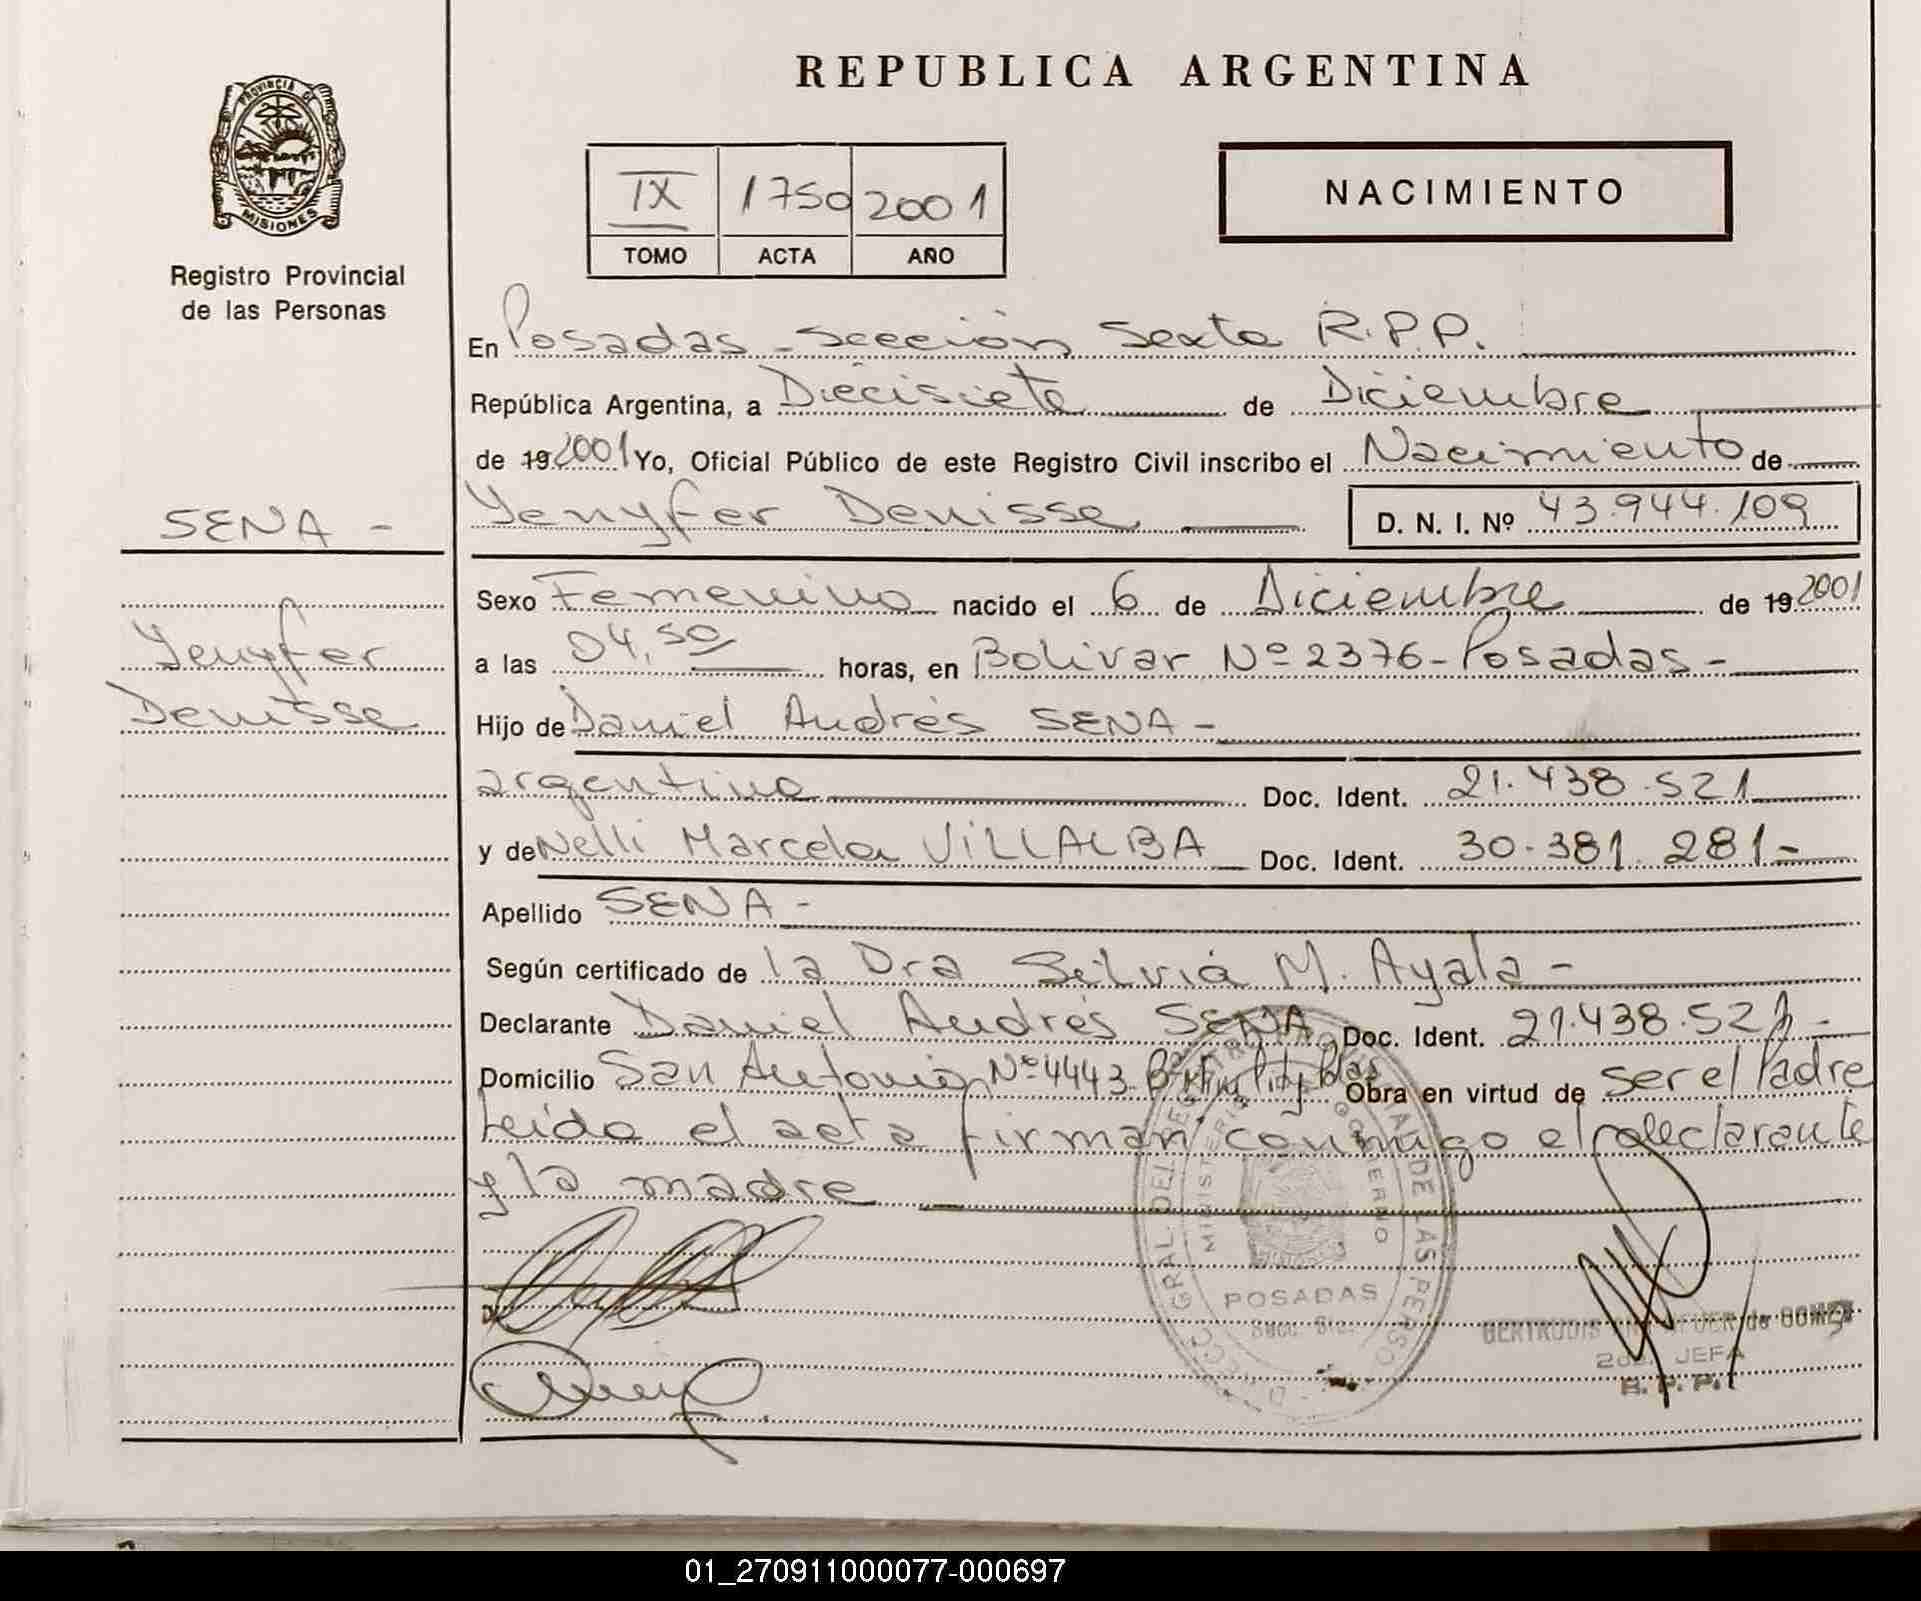 REPUBLICA ARGENTINA
PROVINCIA DE
MISIONES
Registro Provincial
de las Personas
IX 1750 2001
TOMO ACTA AÑO
NACIMIENTO
En Posadas - Sección Sexta R.P.P.
República Argentina, a Diecisiete de Diciembre
de 19 2001 Yo, Oficial Público de este Registro Civil inscribo el Nacimiento de
SENA -
Yenyfer Denisse D. N. I. Nº 43.944.109
Sexo Femenino nacido el 6 de Diciembre de 19 2001
Yenyfer
Denisse
a las 04,50 horas, en Bolivar Nº 2376 - Posadas -
Hijo de Daniel Andrés SENA -
argentino Doc. Ident. 21.438.521
y de Nelli Marcela VILLALBA Doc. Ident. 30.381.281 -
Apellido SENA -
Según certificado de la Dra Silvia M. Ayala -
Declarante Daniel Andrés SENA Doc. Ident. 21.438.521 -
Domicilio San Antonio Nº 4443 Obra en virtud de ser el Padre
Leído el acta firman conmigo el declarante
y la madre
MINISTERIO GOBIERNO
POSADAS
Secc. 6ta.
GERTRUDIS de GOMEZ
2da. JEFA
R. P. P.
01_270911000077-000697